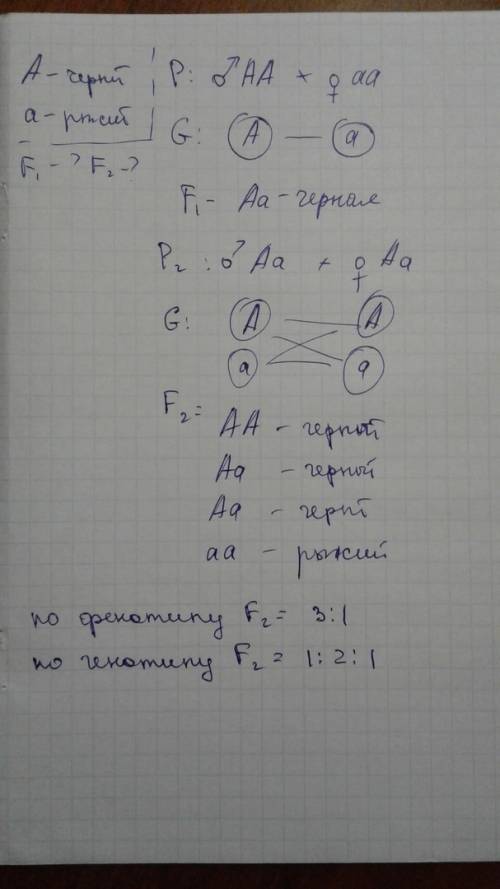 А - черный
а - рыжий
F₁ - ? F₂ - ?
P: ♂ AA × ♀ aa
G: A — a
F₁ - Aa - черная
P₂: ♂ Aa × ♀ Aa
G: A A
a a
F₂ =
AA - черный
Aa - черной
Aa - черн
aa - рыжий
по фенотипу F₂ = 3:1
по генотипу F₂ = 1:2:1